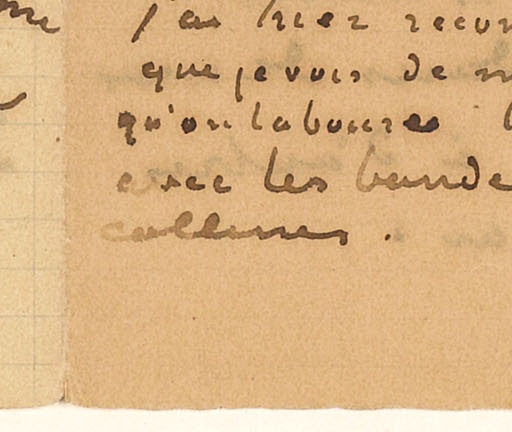 j'ai hier recom
que je vois de m
qu'on laboure
avec les bande
collines .